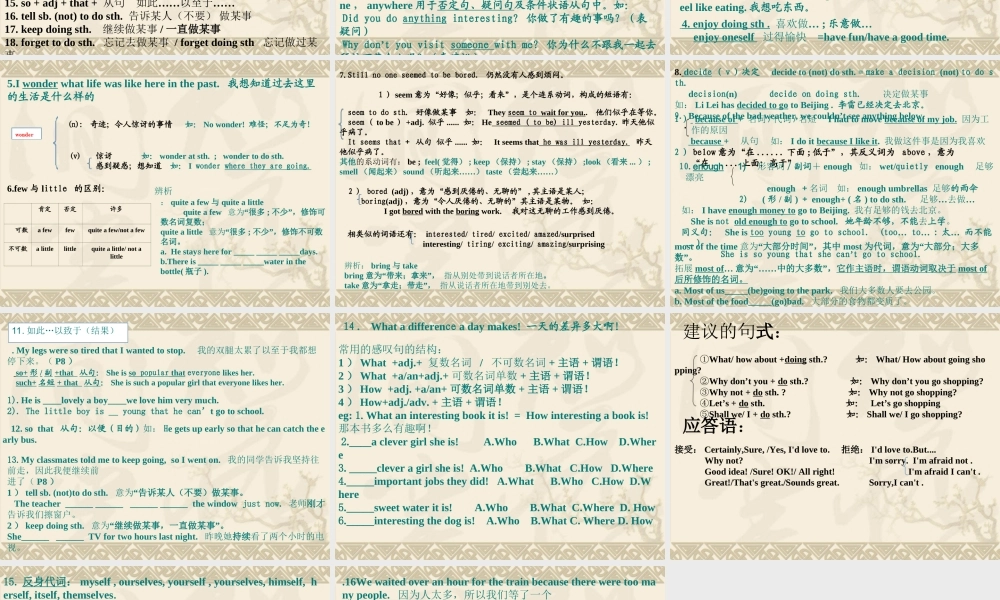 15. so + adj + that + 从句 如此……以至于……
16. tell sb. (not) to do sth. 告诉某人（不要） 做某事
17. keep doing sth. 继续做某事 / 一直做某事
18. forget to do sth. 忘记去做某事 / forget doing sth 忘记做过某
ne ， anywhere 用于否定句、疑问句及条件状语从句中。如:
Did you do anything interesting? 你做了有趣的事吗？（表
疑问）
Why don't you visit someone with me? 你为什么不跟我一起去
eel like eating. 我想吃东西。
4. enjoy doing sth . 喜欢做…；乐意做…
enjoy oneself 过得愉快 =have fun/have a good time.
5.I wonder what life was like here in the past. 我想知道过去这里
的生活是什么样的
wonder
(n): 奇迹；令人惊讶的事情 如: No wonder! 难怪；不足为奇!
(v) 惊讶 如: wonder at sth. ; wonder to do sth.
感到疑惑；想知道 如: I wonder where they are going.
6.few 与 little 的区别:
肯定 否定 许多
可数 a few few quite a few/not a few
不可数 a little little quite a little/ not a little
辨析
: quite a few 与 quite a little
quite a few 意为“很多；不少”，修饰可
数名词复数；
quite a little 意为“很多；不少”，修饰不可数
名词。
a. He stays here for _____ _____ _____ days.
b.There is _____ _____ _____water in the
bottle( 瓶子 ).
7.Still no one seemed to be bored. 仍然没有人感到烦闷。
1 ）seem 意为“好像；似乎；看来”，是个连系动词，构成的短语有:
seem to do sth. 好像做某事 如: They seem to wait for you.. 他们似乎在等你。
seem ( to be ) +adj. 似乎 ...... 如: He seemed ( to be) ill yesterday. 昨天他似
乎病了。
It seems that + 从句 似乎 ...... 如: It seems that he was ill yesterday. 昨天
他似乎病了。
其他的系动词有: be ; feel( 觉得) ; keep （保持） ; stay （保持） ;look （看来…） ;
smell （闻起来） sound （听起来……） taste （尝起来……）
2 ） bored (adj) ，意为“感到厌倦的、无聊的” ,其主语是某人;
boring(adj) ，意为“令人厌倦的、无聊的” 其主语是某物。 如:
I got bored with the boring work. 我对这无聊的工作感到厌倦。
相类似的词语还有: interested/ tired/ excited/ amazed/surprised
interesting/ tiring/ exciting/ amazing/surprising
辨析: bring 与 take
bring 意为“带来；拿来”， 指从别处带到说话者所在地。
take 意为“拿走；带走”， 指从说话者所在地带到别处去。
8. decide ( v ) 决定 decide to (not) do sth. = make a decision (not) to do s
th.
decision(n) decide on doing sth. 决定做某事
如: Li Lei has decided to go to Beijing . 李雷已经决定去北京。
because + 从句 如: I do it because I like it. 我做这件事是因为我喜欢
2 ) below 意为“在 . . . . . . 下面；低于”，其反义词为 above ，意为
enough + 名词 如: enough umbrellas 足够的雨伞
2） （形 / 副） + enough+ ( 名 ) to do sth. 足够…去做…
如: I have enough money to go to Beijing. 我有足够的钱去北京。
She is not old enough to go to school. 她年龄不够，不能去上学。
同义句: She is too young to go to school. （too... to...：太… 而不能
most of the time 意为“大部分时间”，其中 most 为代词，意为“大部分；大多
数”。
She is so young that she can't go to school.
拓展 most of… 意为“……中的大多数”，它作主语时，谓语动词取决于 most of
后所修饰的名词。
a. Most of us_____(be)going to the park. 我们大多数人要去公园
b. Most of the food_____(go)bad. 大部分的食物都变质了。
11. 如此…以致于（结果）
. My legs were so tired that I wanted to stop. 我的双腿太累了以至于我都想
停下来。（ P8 ）
so+ 形 / 副 +that 从句: She is so popular that everyone likes her.
such+ 名短 + that 从句: She is such a popular girl that everyone likes her.
1). He is ____lovely a boy____we love him very much.
2). The little boy is __ young that he can’t go to school.
12. so that 从句：以便（目的）如: He gets up early so that he can catch the e
arly bus.
13. My classmates told me to keep going, so I went on. 我的同学告诉我坚持往
前走，因此我便继续前
进了（ P8 ）
1 ） tell sb. (not)to do sth. 意为“告诉某人（不要）做某事。
The teacher ______ ______ ______ ______ the window just now. 老师刚才
告诉我们擦窗户。
2 ） keep doing sth. 意为“继续做某事，一直做某事”。
She______ ______ TV for two hours last night. 昨晚她持续看了两个小时的电
视。
14 . What a difference a day makes! 一天的差异多大啊！
常用的感叹句的结构:
1 ） What +adj.+ 复数名词 / 不可数名词 + 主语 + 谓语！
2 ） What +a/an+adj.+ 可数名词单数 + 主语 + 谓语！
3 ） How +adj. +a/an+ 可数名词单数 + 主语 + 谓语！
4 ） How+adj./adv. + 主语 + 谓语！
eg: 1. What an interesting book it is! = How interesting a book is!
那本书多么有趣啊！
2._____a clever girl she is! A.Who B.What C.How D.Wher
e
3. _____clever a girl she is! A.Who B.What C.How D.Where
4._____important jobs they did! A. Who B.What C.How D.W
here
5._____sweet water it is! A.Who B.What C.Where D. How
6._____interesting the dog is! A.Who B.What C. Where D. How
建议的句式：
①What/ how about +doing sth.? 如: What/ How about going sho
pping?
②Why don't you + do sth.? 如: Why don't you go shopping?
③Why not + do sth. ? 如: Why not go shopping?
④Let's + do sth. 如: Let's go shopping
⑤Shall we/ I + do sth.? 如: Shall we/ I go shopping?
应答语：
接受: Certainly,Sure, /Yes, I'd love to. 拒绝: I'd love to.But....
Why not? I'm sorry. I'm afraid not .
Good idea! /Sure! OK!/ All right! I'm afraid I can't .
Great!/That's great./Sounds great. Sorry,I can't .
15. 反身代词: myself , ourselves, yourself , yourselves, himself, h
erself, itself, themselves.
.16We waited over an hour for the train because there were too ma
ny people. 因为人太多，所以我们等了一个